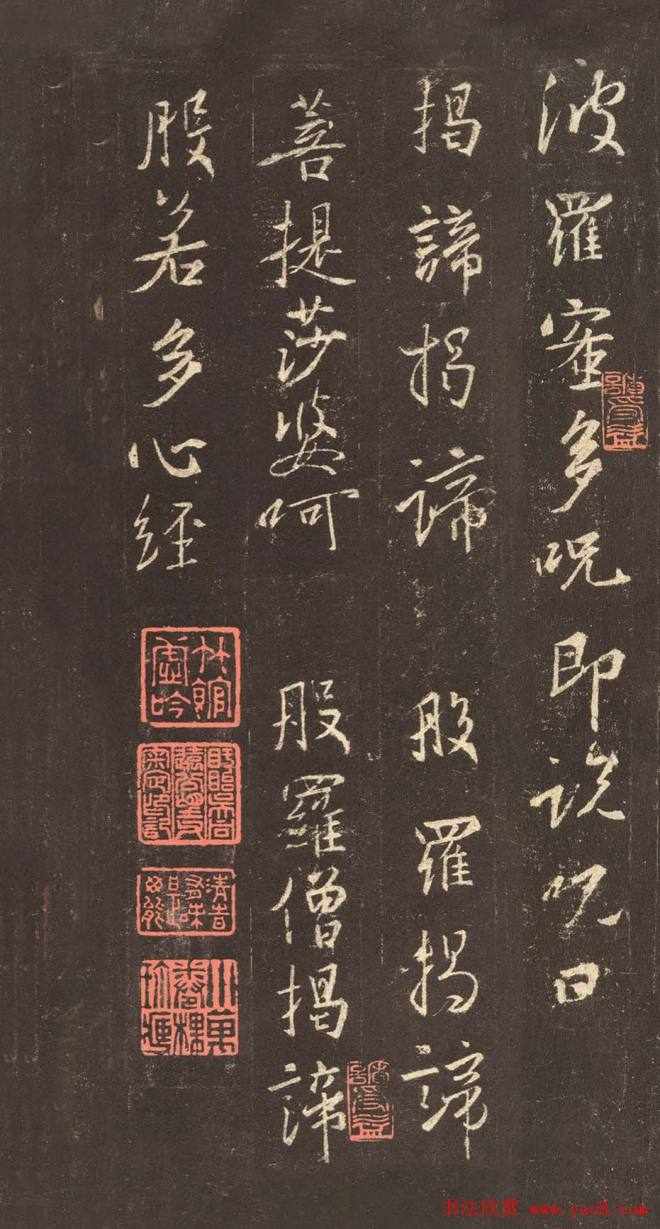 波羅蜜多呪即説呪曰
揭諦揭諦 般羅揭諦
菩提莎婆呵 般羅僧揭諦
般若多心經
竹館虛吟
書法欣賞 www.yac8.com